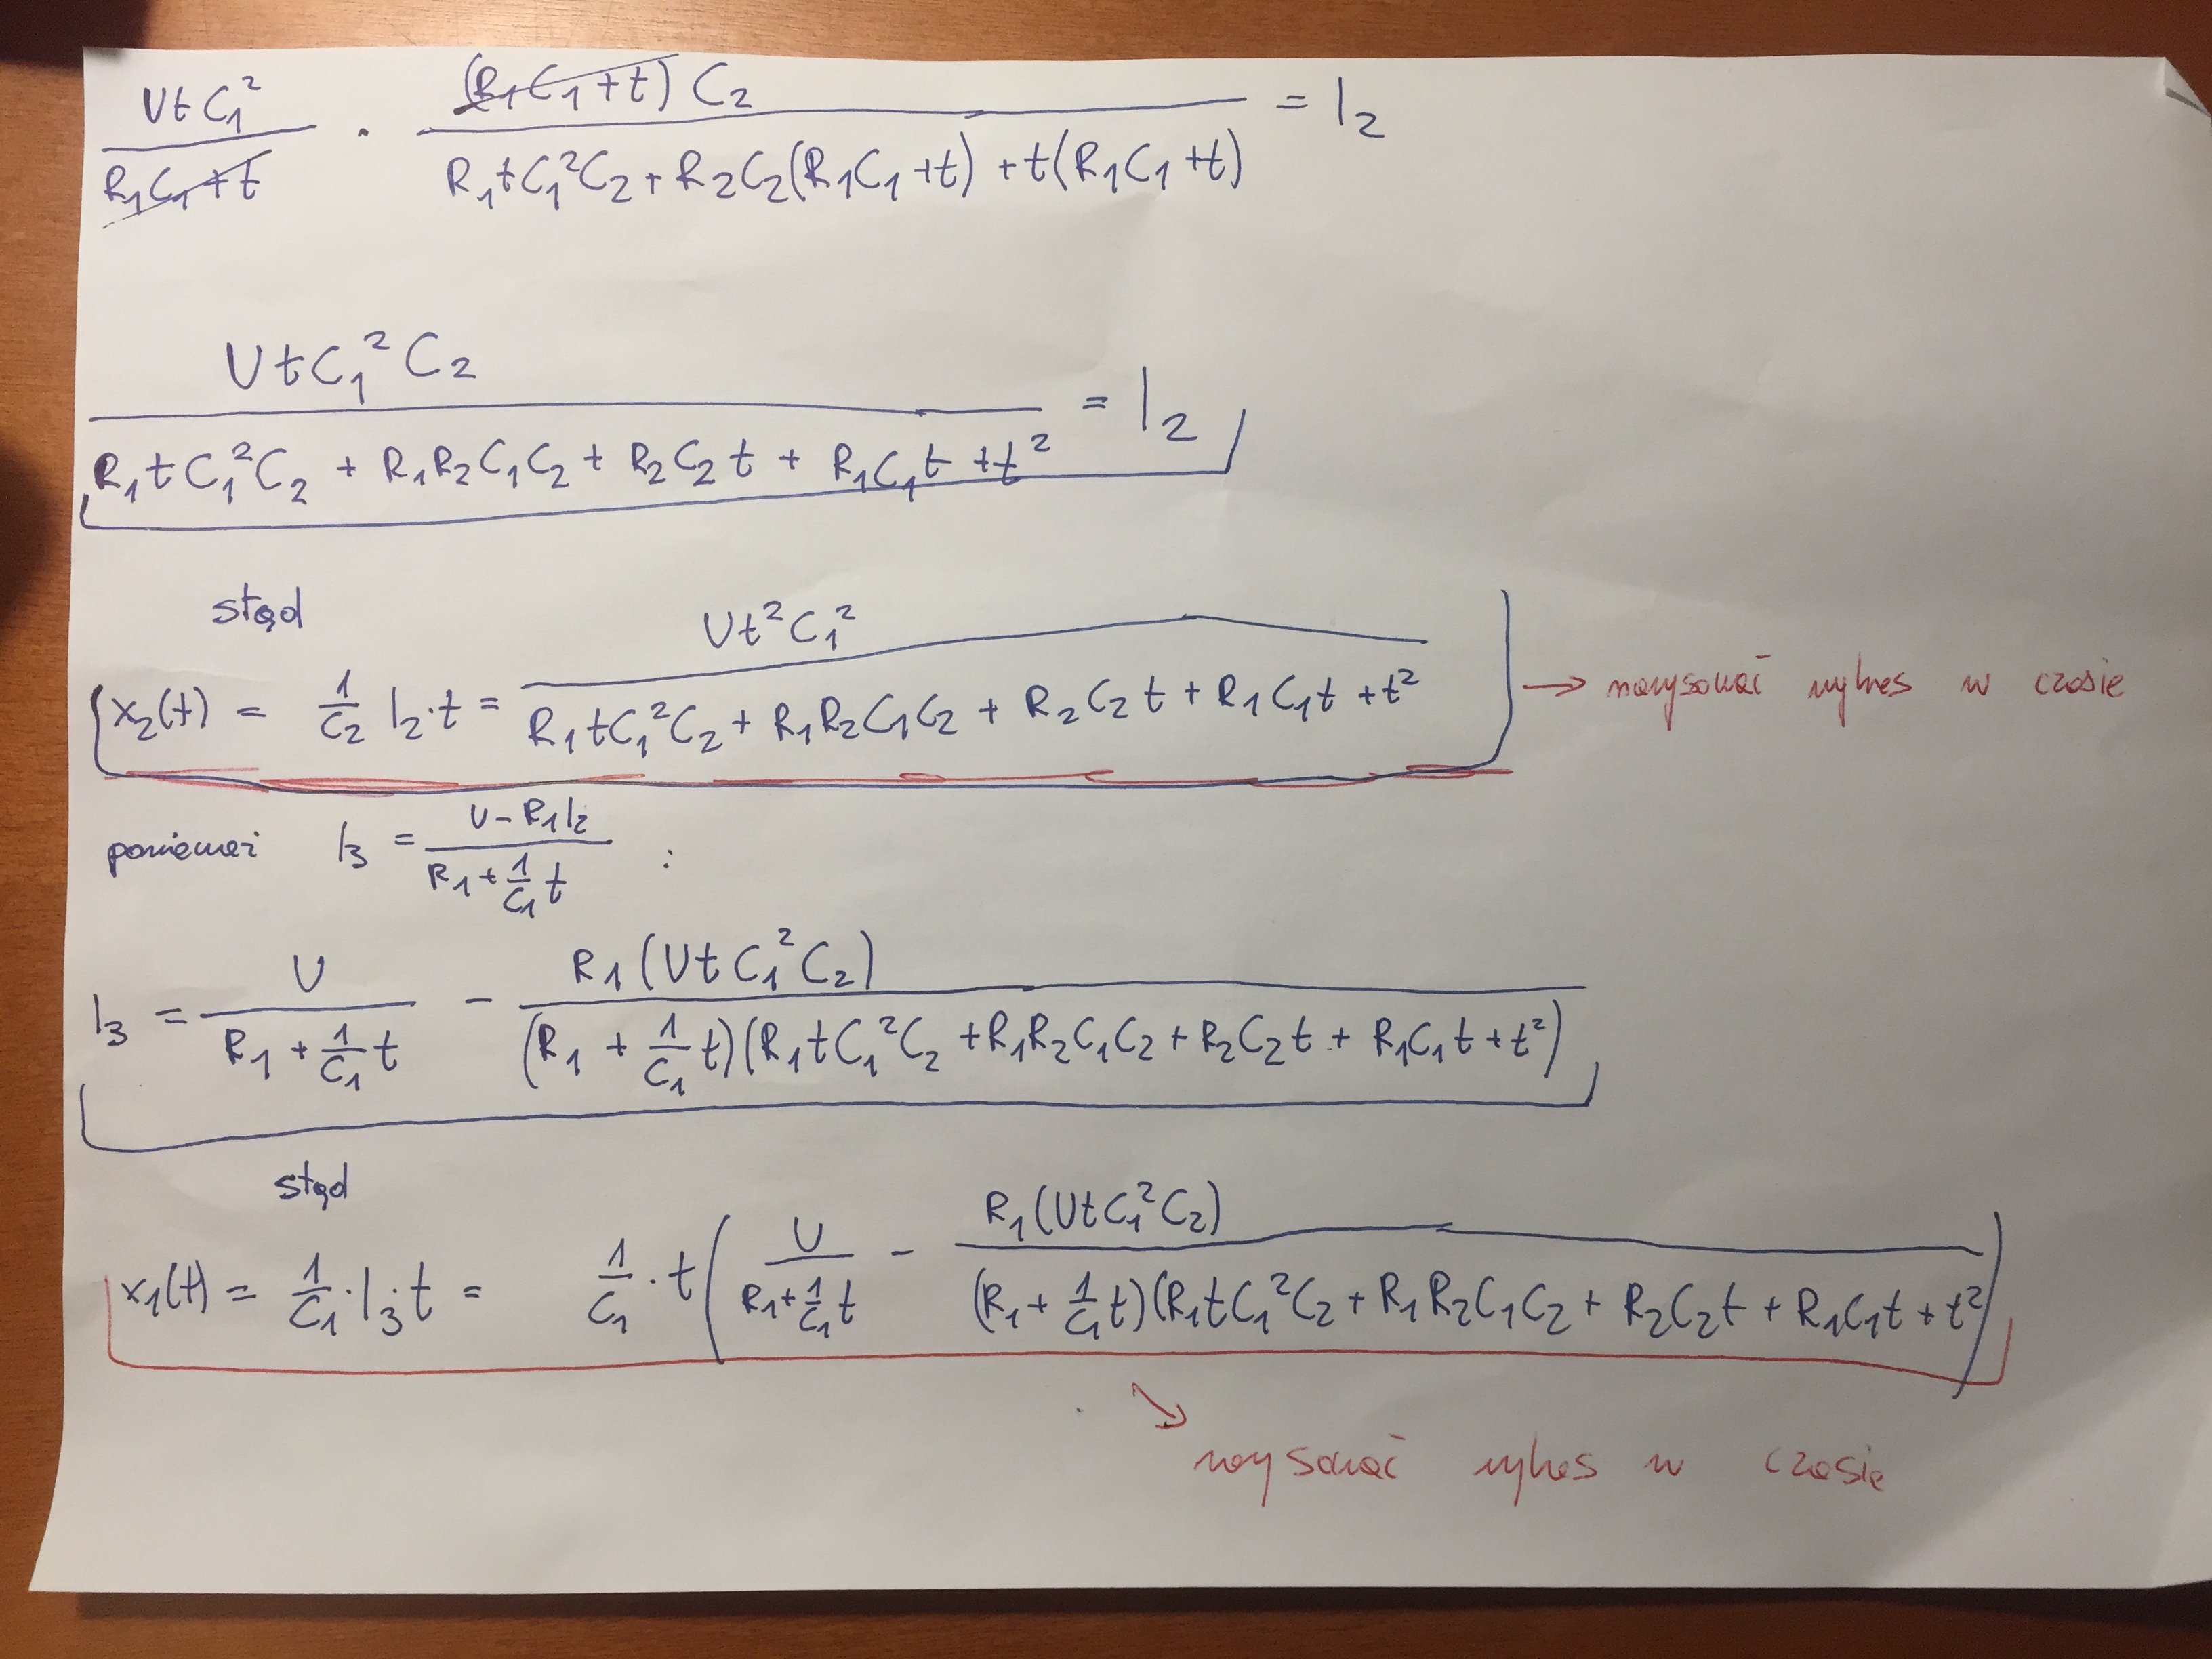 UtC₁² / (R₁C₁+t) · (R₁C₁+t)C₂ / (R₁tC₁²C₂ + R₂C₂(R₁C₁+t) + t(R₁C₁+t)) = I₂
UtC₁²C₂ / (R₁tC₁²C₂ + R₁R₂C₁C₂ + R₂C₂t + R₁C₁t + t²) = I₂
stąd
x₂(t) = 1/C₂ I₂·t = Ut²C₁² / (R₁tC₁²C₂ + R₁R₂C₁C₂ + R₂C₂t + R₁C₁t + t²) → narysować wykres w czasie
ponieważ I₃ = (U − R₁I₂) / (R₁ + 1/C₁ t) :
I₃ = U / (R₁ + 1/C₁ t) − R₁(UtC₁²C₂) / ((R₁ + 1/C₁ t)(R₁tC₁²C₂ + R₁R₂C₁C₂ + R₂C₂t + R₁C₁t + t²))
stąd
x₁(t) = 1/C₁·I₃·t = 1/C₁·t (U / (R₁ + 1/C₁ t) − R₁(UtC₁²C₂) / ((R₁ + 1/C₁ t)(R₁tC₁²C₂ + R₁R₂C₁C₂ + R₂C₂t + R₁C₁t + t²))
↘ narysować wykres w czasie